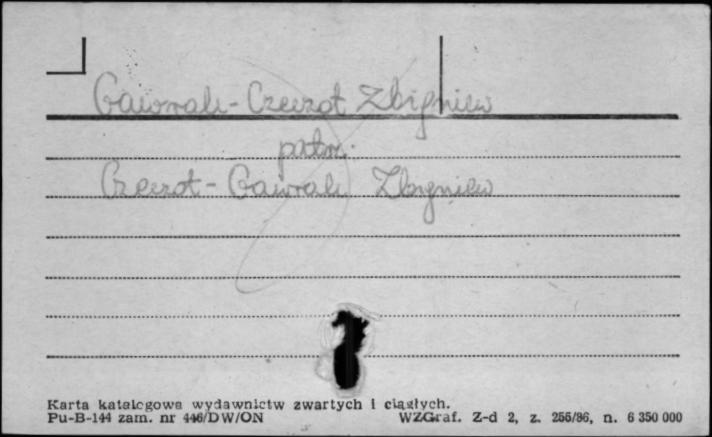 Gawrak-Czeczot Zbigniew
patrz.
Czeczot-Gawrak Zbigniew
Karta katalogowa wydawnictw zwartych i ciągłych.
Pu-B-144 zam. nr 446/DW/ON WZGraf. Z-d 2, z. 256/86, n. 6 350 000